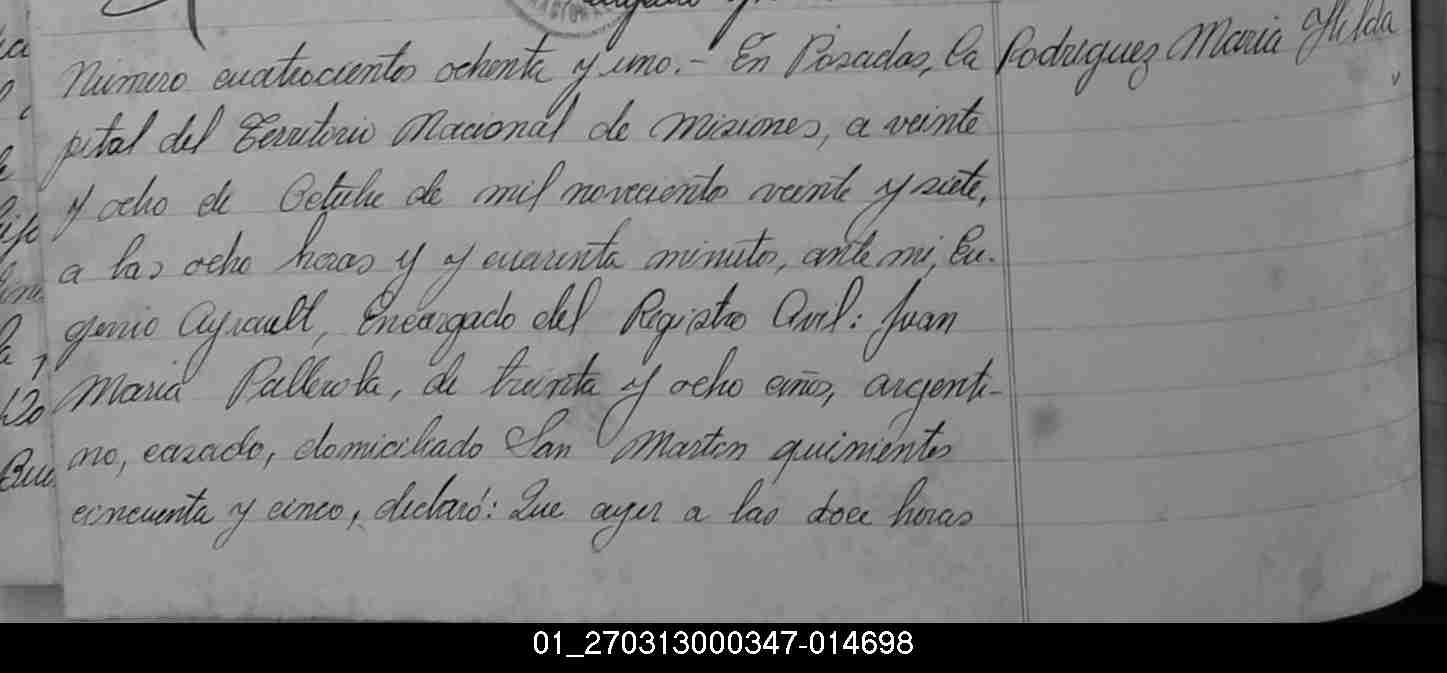 Número cuatrocientos ochenta y uno.- En Posadas, Ca
pital del Territorio Nacional de Misiones, a veinte
y ocho de Octubre de mil novecientos veinte y siete,
a las ocho horas y y cuarenta minutos, ante mi, Eu-
genio Ayrault, Encargado del Registro Civil: Juan
Maria de treinta y ocho años, argenti-
no, casado, domiciliado San Martin quinientos
cincuenta y cinco, declaró: Que ayer a las doce horas
Rodriguez Maria Hilda
01_270313000347-014698